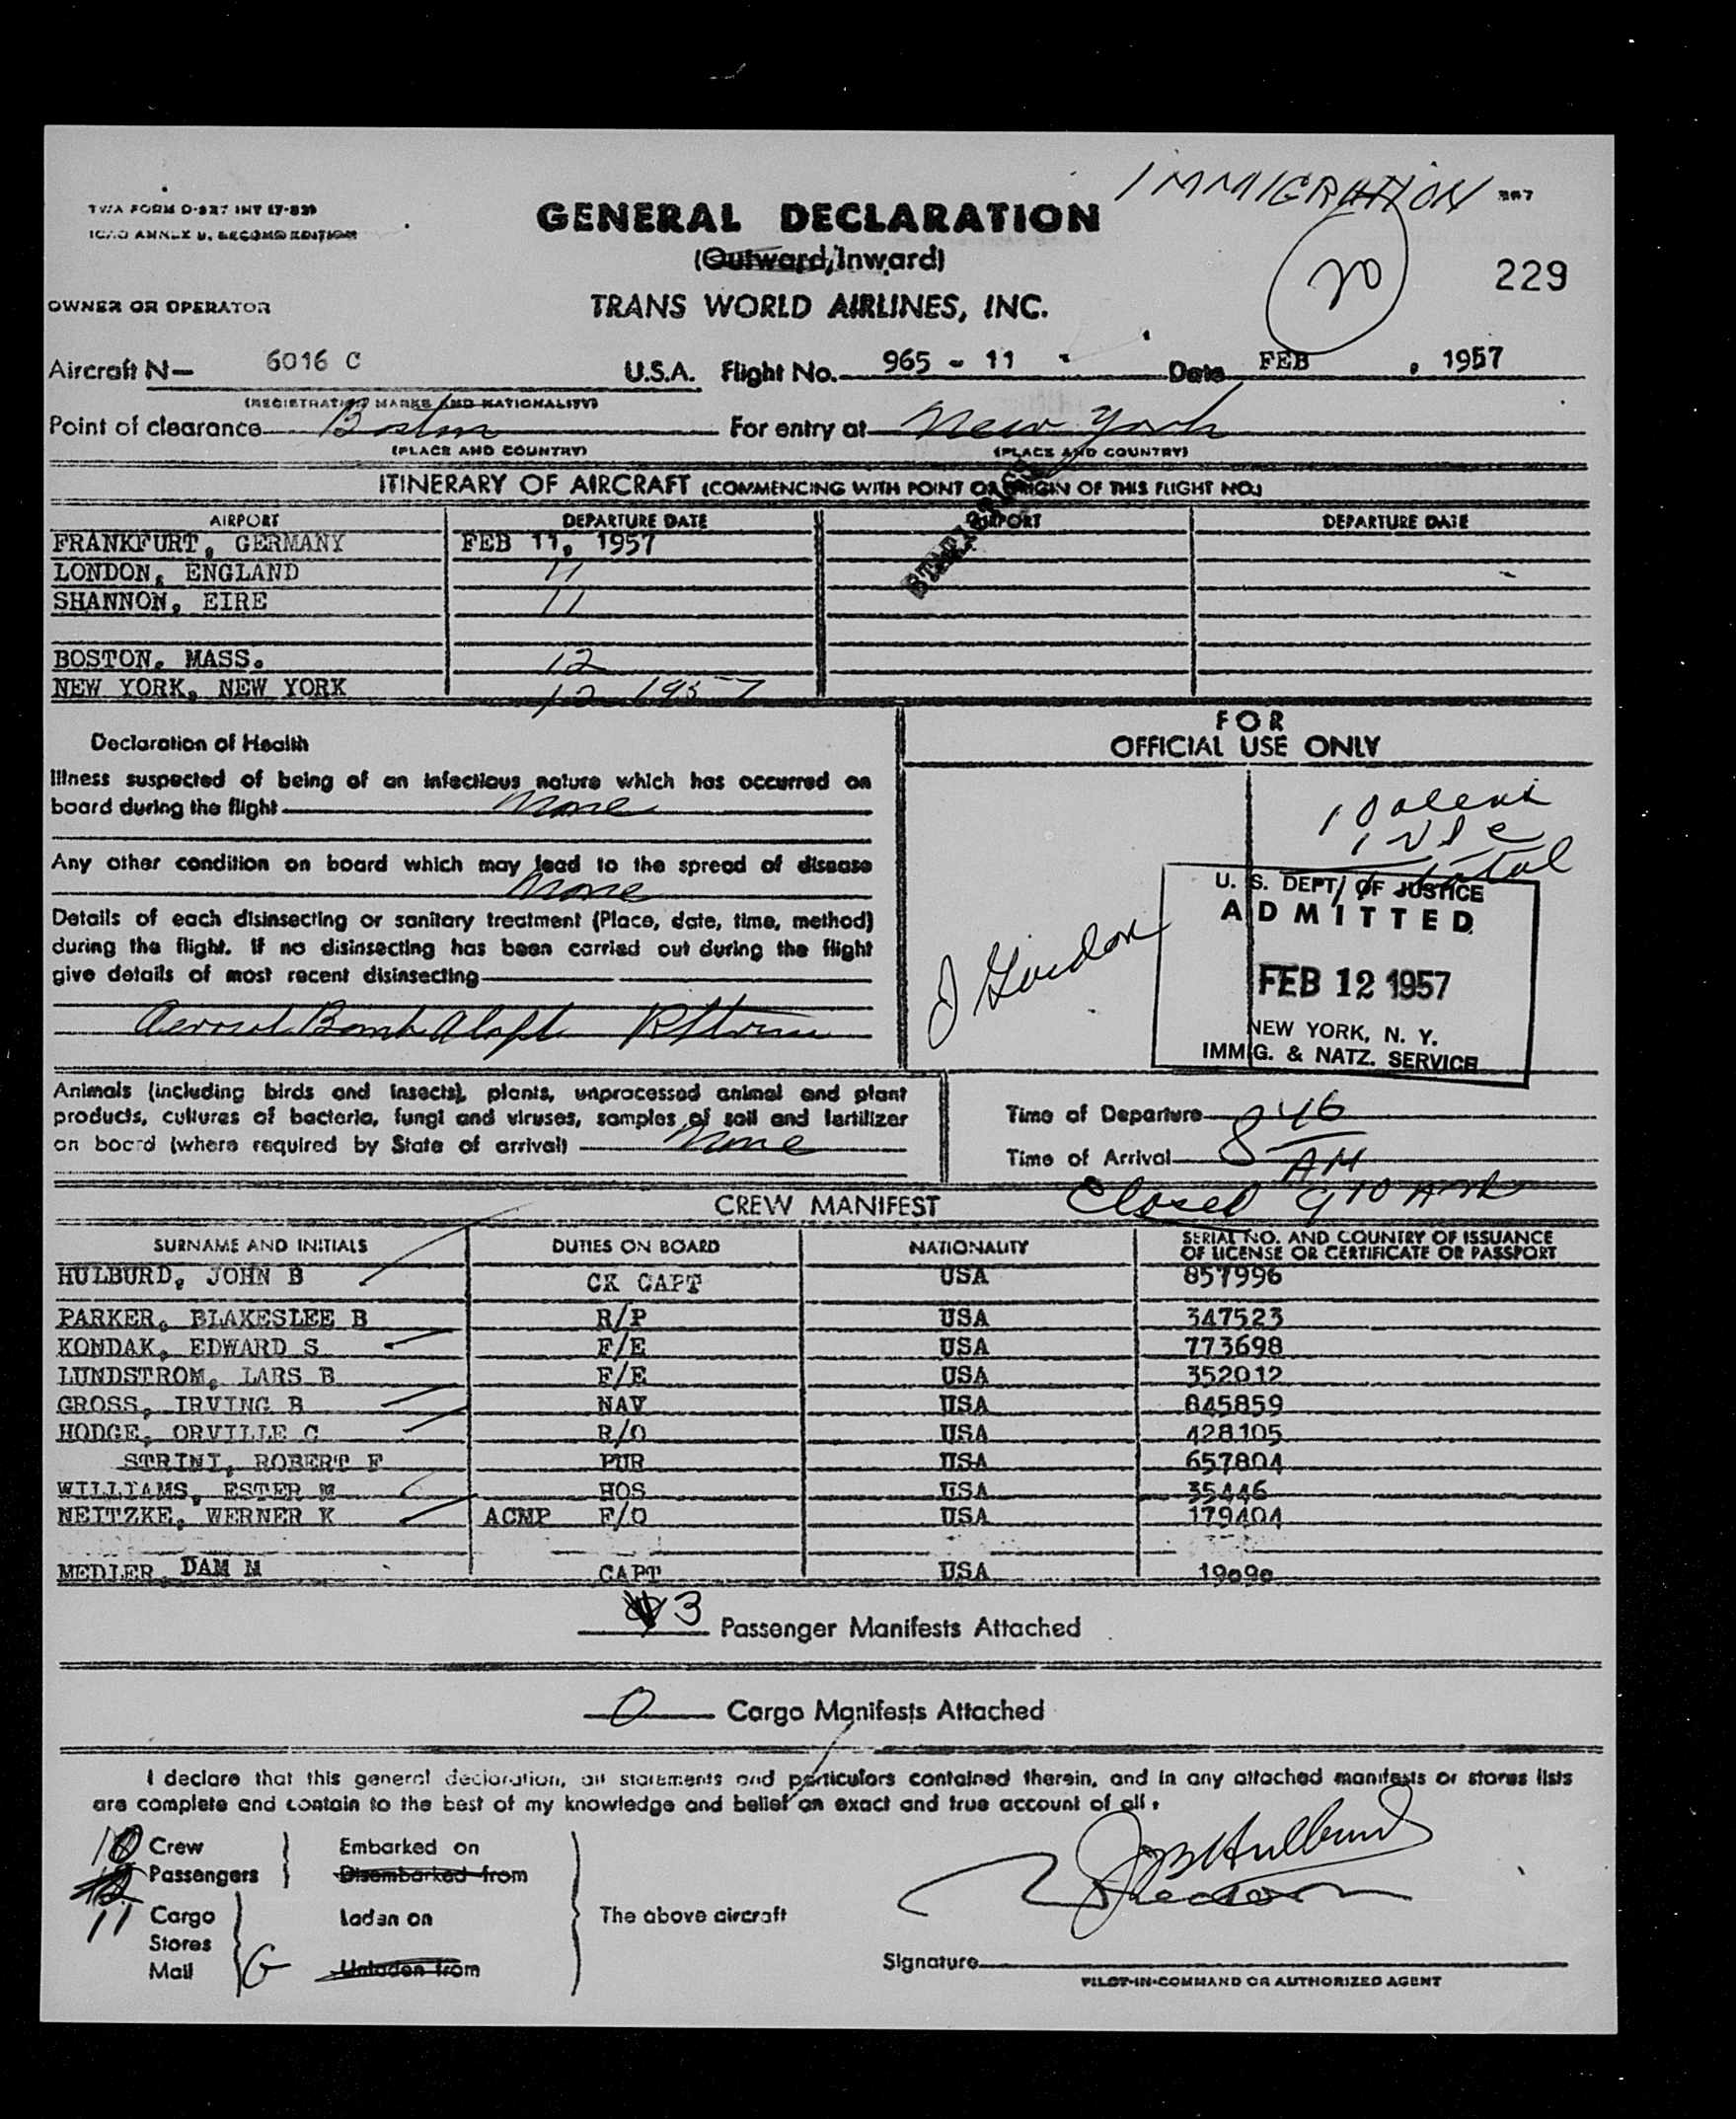 IMMIGRATION
TWA FORM D-827 INT (7-55)
ICAO ANNEX 9, SECOND EDITION
GENERAL DECLARATION
(Outward/Inward)
20
229
OWNER OR OPERATOR
TRANS WORLD AIRLINES, INC.
Aircraft N— 6016 C U.S.A. Flight No. 965 - 11 Date FEB , 1957
(REGISTRATION MARKS AND NATIONALITY)
Point of clearance Boston For entry at New York
(PLACE AND COUNTRY) (PLACE AND COUNTRY)
ITINERARY OF AIRCRAFT (COMMENCING WITH POINT OF ORIGIN OF THIS FLIGHT NO.)
AIRPORT DEPARTURE DATE AIRPORT DEPARTURE DATE
FRANKFURT, GERMANY FEB 11, 1957
LONDON, ENGLAND 11
SHANNON, EIRE 11
BOSTON, MASS. 12
NEW YORK, NEW YORK 12 1957
FOR
OFFICIAL USE ONLY
Declaration of Health
Illness suspected of being of an infectious nature which has occurred on
board during the flight None
Any other condition on board which may lead to the spread of disease
None
Details of each disinsecting or sanitary treatment (Place, date, time, method)
during the flight. If no disinsecting has been carried out during the flight
give details of most recent disinsecting
Aerosol Bomb Aloft
total
U. S. DEPT. OF JUSTICE
ADMITTED
FEB 12 1957
NEW YORK, N. Y.
IMMIG. & NATZ. SERVICE
J Gordon
Animals (including birds and insects), plants, unprocessed animal and plant
products, cultures of bacteria, fungi and viruses, samples of soil and fertilizer
on board (where required by State of arrival) None
Time of Departure
Time of Arrival 8 46 AM
Closed 9 10 AM
CREW MANIFEST
SURNAME AND INITIALS DUTIES ON BOARD NATIONALITY SERIAL NO. AND COUNTRY OF ISSUANCE
OF LICENSE OR CERTIFICATE OR PASSPORT
HULBURD, JOHN B CK CAPT USA 857996
PARKER, BLAKESLEE B R/P USA 347523
KONDAK, EDWARD S F/E USA 773698
LUNDSTROM, LARS B F/E USA 352012
GROSS, IRVING B NAV USA 845859
HODGE, ORVILLE C R/O USA 428105
STRINI, ROBERT F PUR USA 657804
WILLIAMS, ESTER M HOS USA 35446
NEITZKE, WERNER K ACMP F/O USA 179404
MEDLER DAM M CAPT USA 19090
3 Passenger Manifests Attached
0 Cargo Manifests Attached
I declare that this general declaration, all statements and particulars contained therein, and in any attached manifests or stores lists
are complete and contain to the best of my knowledge and belief an exact and true account of all.
10 Crew Embarked on
Passengers Disembarked from
11 Cargo Laden on The above aircraft
Stores
Mail Unladen from
JB Hulburd
Signature
PILOT-IN-COMMAND OR AUTHORIZED AGENT